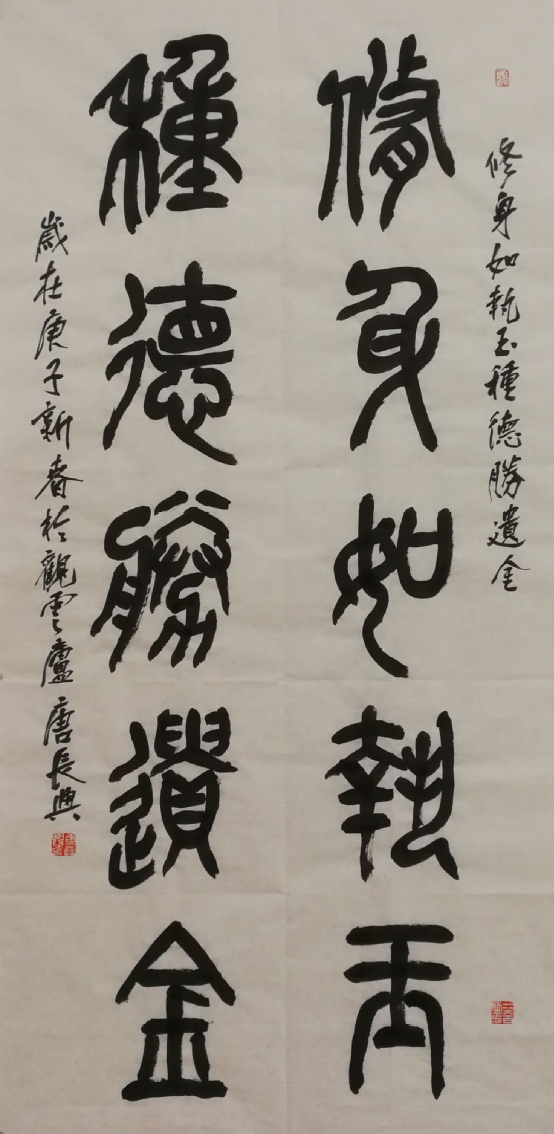 修身如執玉種德勝遺金
脩身如執玉
種德勝遺金
歲在庚子新春於觀雲廬唐長興